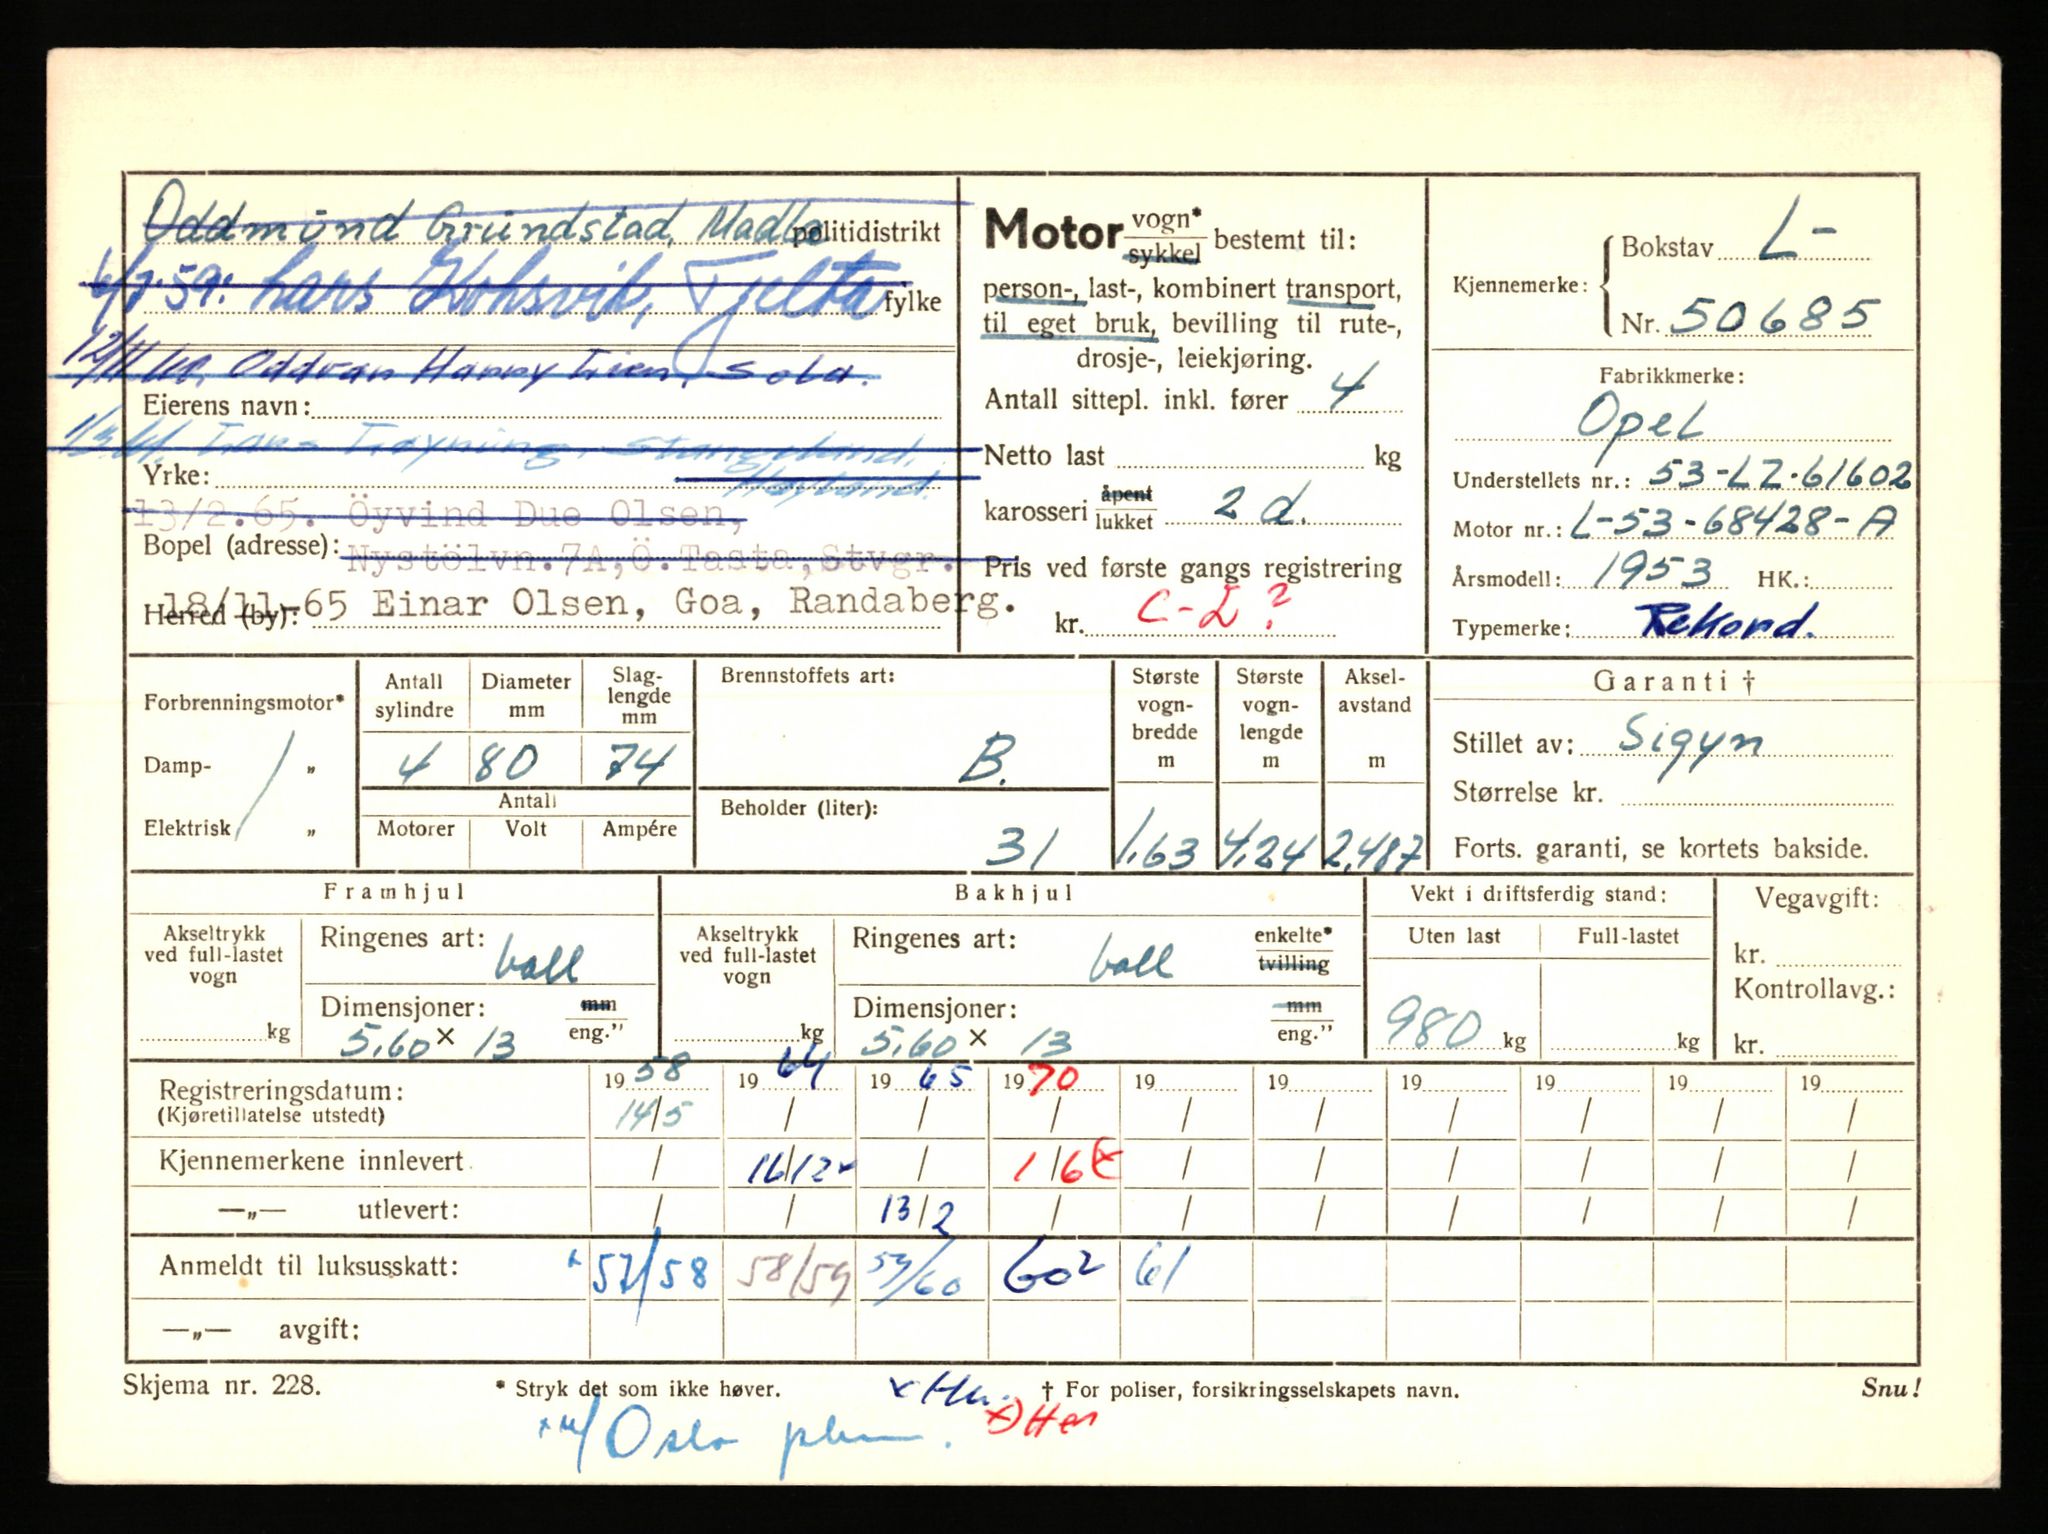 Oddmund Grundstad, Madla politidistrikt
6/7.59: Lars Kohsvik, Tjelta fylke
12/11 60. Oddvar Harry Lien, Sola.
Eierens navn:
1/3.61. Lars Trøyning, Stangeland,
Yrke: Høyland.
13/2.65. Öyvind Due Olsen,
Bopel (adresse): Nystölvn.7A,Ö.Tasta,Stvgr.
18/11-65 Einar Olsen, Goa, Randaberg.
Herred (by):
Motor vogn* sykkel bestemt til:
person-, last-, kombinert transport,
til eget bruk, bevilling til rute-,
drosje-, leiekjøring.
Antall sittepl. inkl. fører 4
Netto last kg
karosseri åpent lukket 2 d.
Pris ved første gangs registrering
kr. C-L?
Kjennemerke: Bokstav L-
Nr. 50685
Fabrikkmerke:
Opel
Understellets nr.: 53-LZ-61602
Motor nr.: L-53-68428-A
Årsmodell: 1953 HK.:
Typemerke: Rekord.
Forbrenningsmotor*
Damp- „
Elektrisk „
Antall sylindre Diameter mm Slaglengde mm
4 80 74
Antall
Motorer Volt Ampére
Brennstoffets art:
B.
Beholder (liter):
31
Største vognbredde m Største vognlengde m Akselavstand m
1,63 4,24 2,487
Garanti †
Stillet av: Sigyn
Størrelse kr.
Forts. garanti, se kortets bakside.
Framhjul
Akseltrykk ved full-lastet vogn
kg
Ringenes art: ball
Dimensjoner: mm eng."
5,60 x 13
Bakhjul
Akseltrykk ved full-lastet vogn
kg
Ringenes art: ball enkelte* tvilling
Dimensjoner: mm eng."
5,60 x 13
Vekt i driftsferdig stand:
Uten last Full-lastet
980 kg kg
Vegavgift:
kr.
Kontrollavg.:
kr.
Registreringsdatum: 19 58 19 64 19 65 19 70 19 19 19 19 19 19
(Kjøretillatelse utstedt) 14/5 / / / / / / / / /
Kjennemerkene innlevert / 16/12 x / 1/6 x / / / / / /
—„— utlevert: / / 13/2 / / / / / / /
Anmeldt til luksusskatt: x 57/58 58/59 59/60 60² 61
—„— avgift:
Skjema nr. 228. * Stryk det som ikke høver. x Hu. † For poliser, forsikringsselskapets navn. Snu!
x) Her
Oslo